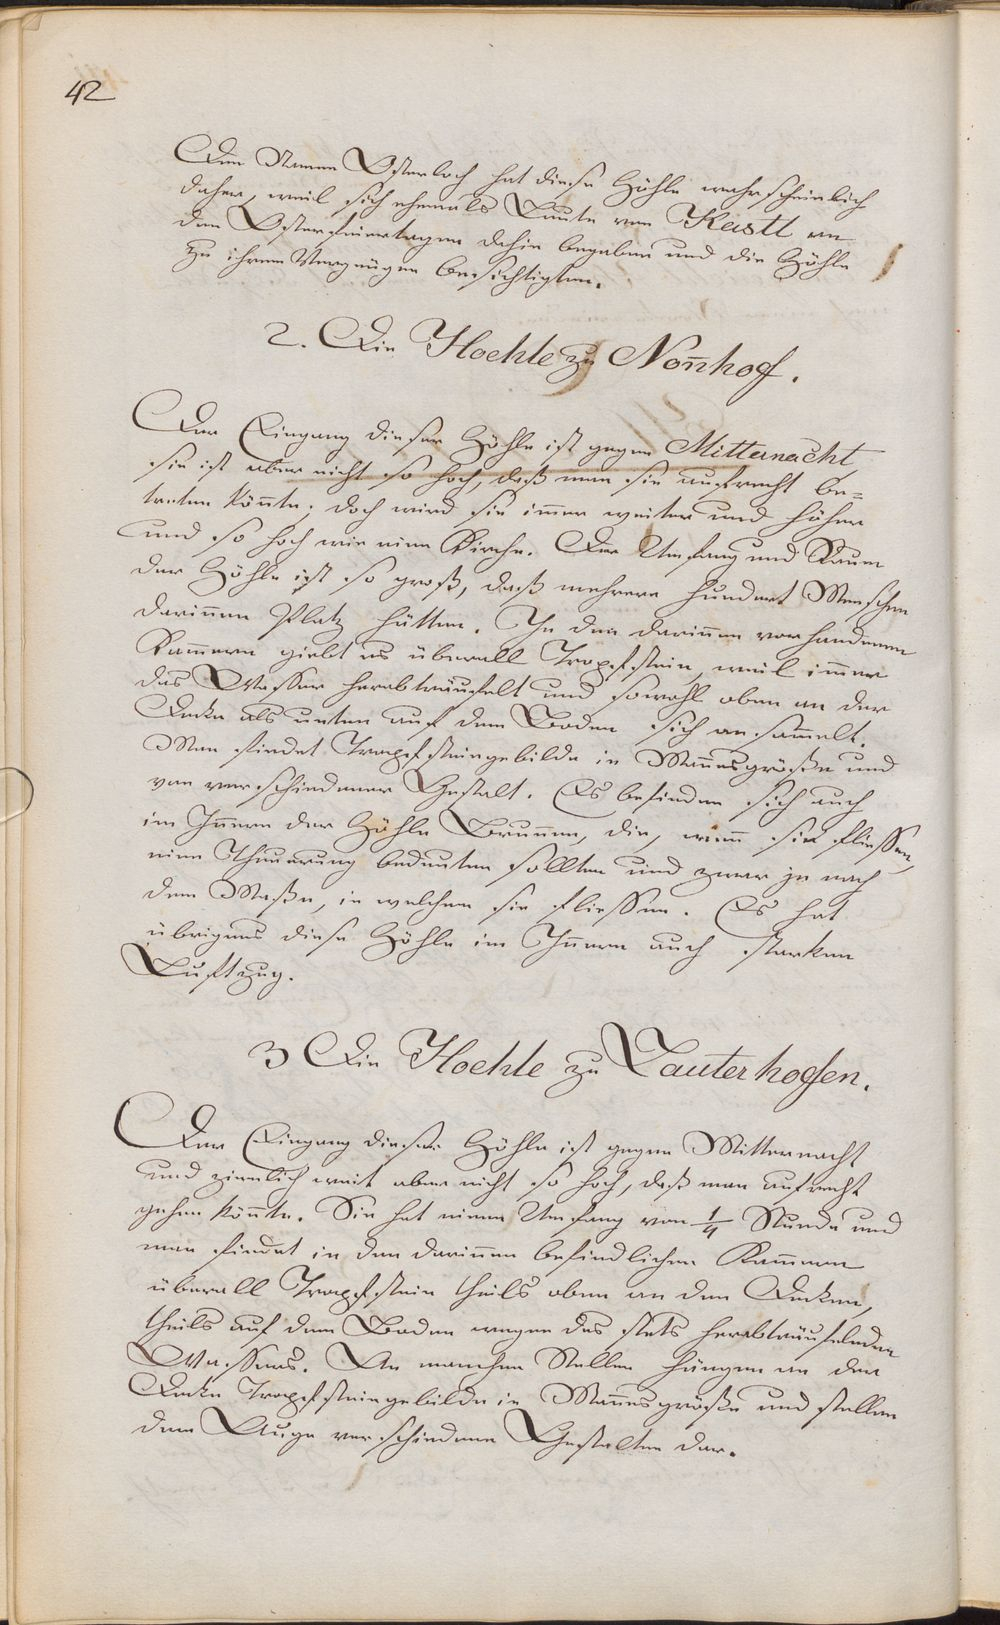 42
Den Namen Osterloch hat diese Höhle wahrscheinlich
daher, weil sich ehemals Leute von Kastl an
den Osterfeiertagen dahin begaben und die Höhle
zu ihrem Vergnügen besichtigten.
2. Die Hoehle zu Non̄hof.
Der Eingang dieser Höhle ist gegen Mitternacht,
sie ist aber nicht so hoch, daß man sie aufrecht be=
treten kön̄te; doch wird sie im̄er weiter und höher
und so hoch wie eine Kirche. Der Umfang und Raum
der Höhle ist so groß, daß mehrere hundert Menschen
darin̄en Platz hätten. In den darin̄en vorhandenen
Kam̄ern giebt es überall Tropfstein, weil im̄er
das Wasser herabträufelt und sowohl oben an der
Decke als unten auf dem Boden sich ansam̄elt.
Man findet Tropfsteingebilde in Man̄esgröße und
von verschiedener Gestalt. Es befinden sich auch
im In̄ern der Höhle Brun̄en, die, wen̄ sie fliessen,
eine Theuerung bedeuten sollten und zwar je nach
dem Maße, in welchem sie fliessen. Es hat
übrigens diese Höhle im In̄ern auch starken
Luftzug.
3 Die Hoehle zu Lauterhofen.
Der Eingang dieser Höhle ist gegen Mitternacht
und ziemlich weit aber nicht so hoch, daß man aufrecht
gehen kön̄te. Sie hat einen Umfang von 1/4 Stunde und
man findet in den darin̄en befindlichen Kam̄ern
überall Tropfstein theils oben an den Decken,
theils auf dem Boden wegen des stets herabträufelnden
Wassers. An manchen Stellen hängen an der
Decke Tropfsteingebilde in Man̄esgröße und stellen
dem Auge verschiedene Gestalten dar.